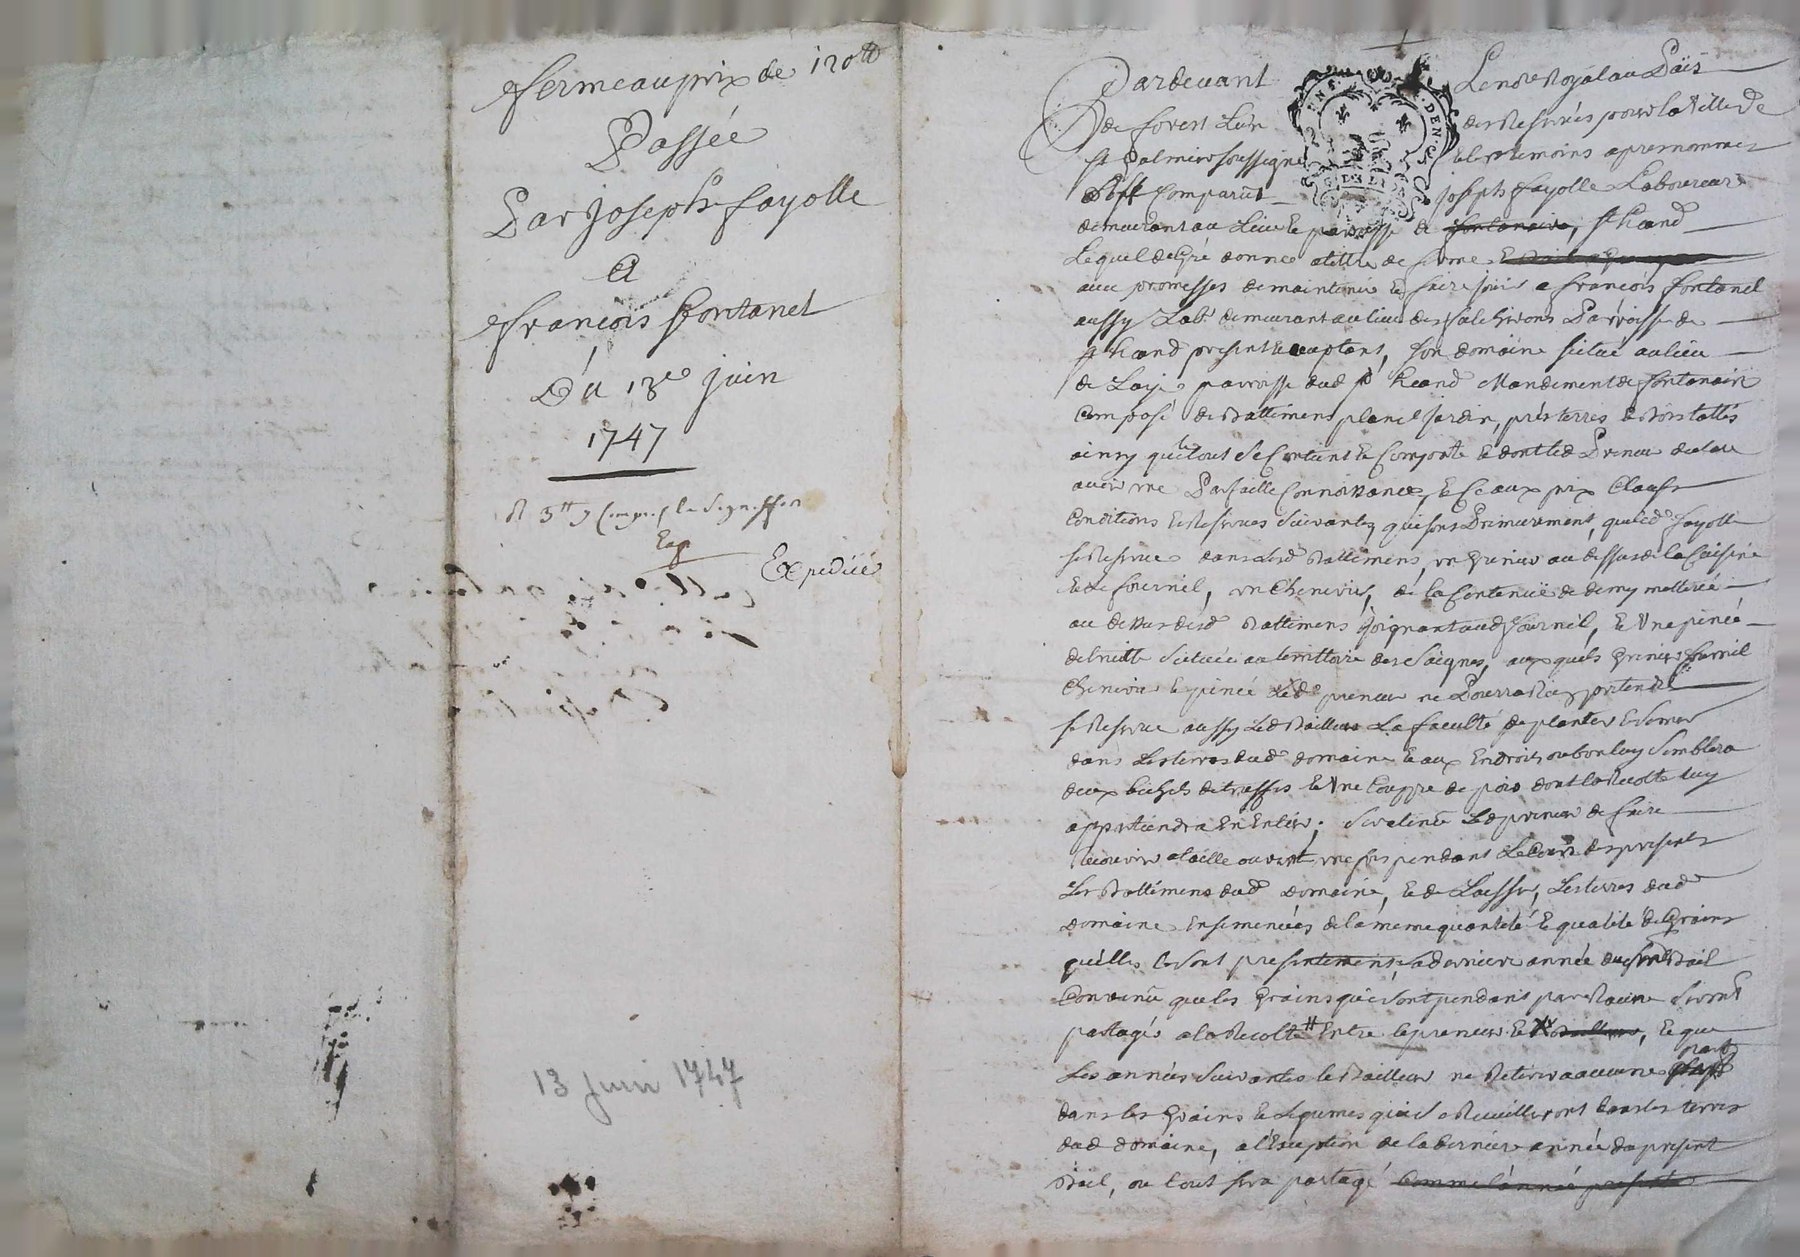 ferme au prix de 120tt
Passée
Par Joseph fayolle
A
françois fontanel
Du 13e juin
1747
Expediée
13 Juin 1747
Pardevant Le nore Royal au Païs
de forest L'un des Reservés pour la Ville de
st Galmier soussigné et les temoins apres nommez
Comparût joseph fayolle Laboureur
demeurant au Lieu et paroisse de fontanais, st heand
Lequel de Gré donne a tittre de ferme
avec promesses de maintenir et faire jouir a françois fontanel
aussy Labr demeurant au lieu des Paroisse de
st heand present acceptant, son domaine scitué au lieu
de paroisse dud st heand Mandement de fontanais
Composé de Battimens plan et jardin, prés terres et Bois
ainsy que le tout Se Contient et Comporte et dont led Preneur declare
avoir une Parfaitte Connoissance, et Ce aux prix Clauses
Conditions et Reserves Suivantes, qui sont Premierement, que led fayolle
se Reserve dans lesd Battimens, un Grenier au dessus de la Cuisine
et le fournil, un Chenevier, de la Contenüe de demy metterée
au dessus desd Battimens joignant aud fournil, et Une
scituée au territoire des Saignes, auxquels Grenier fournil
Chenevier et led preneur ne Pourra Rien pretendre
se Reserve aussy Led Bailleur La faculté de planter et semer
dans Les terres dud domaine et aux Endroits ou bon luy Semblera
deux bichets de truffes et Une Couppe de pois dont la Recolte luy
appartiendra En Entier; Sera tenu Led preneur de faire
recouvrir a taille ouverte une fois pendant Le Cours des presentes
Les Battimens dud Domaine, et de Laisser, Les terres dud
Domaine Ensemencées de la meme quantité et qualité de Grains
qu'elles le sont presentement, la derniere année du Bail
Convenu que les Grains qui sont pendans par Racine Seront
partagés a la Recolte Entre le preneur et Bailleur, et que
Les années Suivantes le Bailleur ne Retirera aucune part
dans les Grains et Legumes qui se Recuilliront dans les terres
dud domaine, a l'Exception de la derniere année du present
Bail, ou tout sera partagé Comme l'année presente